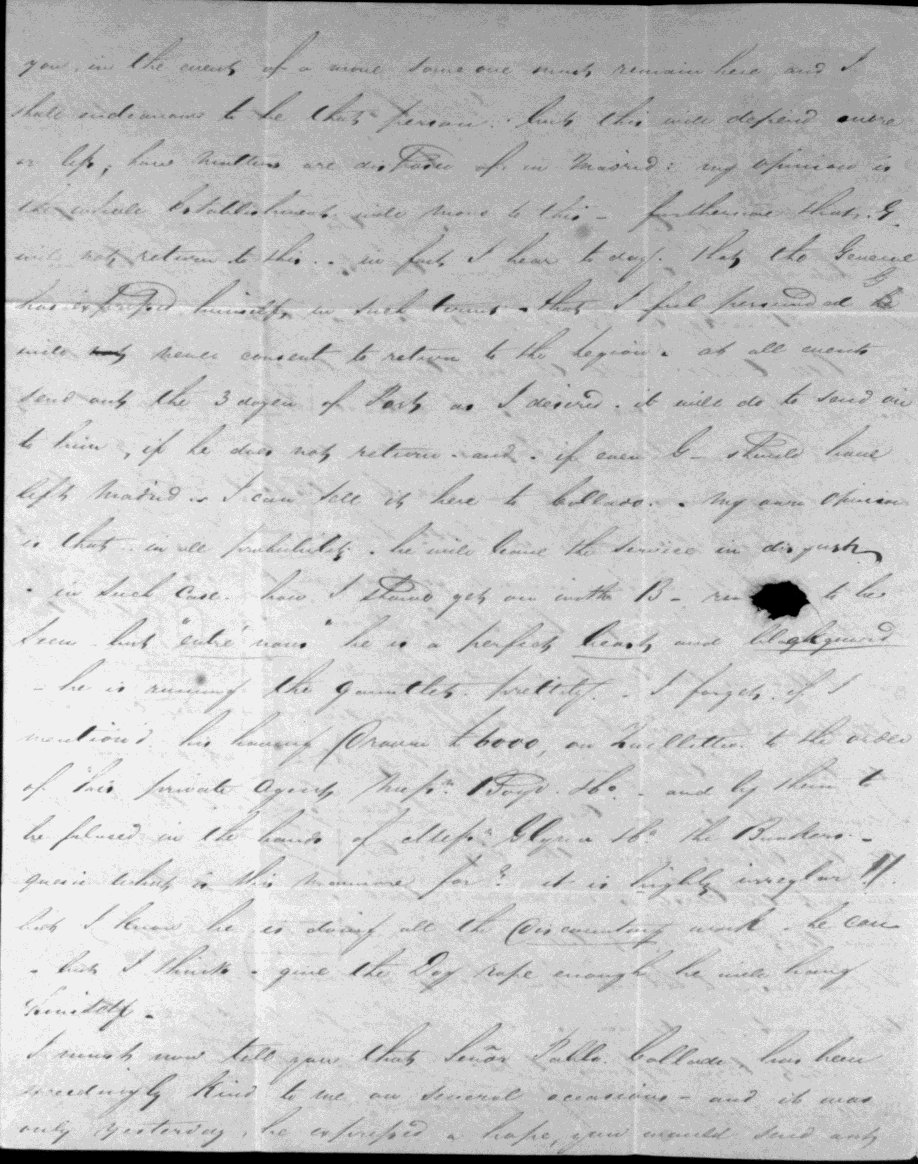 you, in the event of a move some one must remain here and I
shall endeavour to be that person. but this will depend more
or less, how matters are disposed of in Madrid: my opinion is
the whole Establishment will move to this - furthermore that G
will not return to this.. in fact I hear to day. that the General
has expressed himself, in such terms. that I feel persuaded G
will never consent to return to the Legion. at all events
send out the 3 dozen of Port as I desired. it will do to send on
to him, if he does not return. and. if even G - should have
left Madrid. I can sell it here to Collado.. My own opinion
is that. in all probability. he will leave the service in disgust,
. in such case. how I should get on with B - to be
seen. but "entre nous" he is a perfect beast and blackguard
- he is running the gauntlet. prettily. - I forget if I
mention'd his having drawn £6000, on Mulletts to the order
of his private Agents Messrs. Boyd &Co. - and by them to
be placed in the hands of Messrs. Glyn & Co. the Bankers. -
quere what is this manœuvre for? it is highly irregular!!
but I know he is doing all the discounting work. he can
- but I think. give the Dog rope enough he will hang
himself.
I must now tell you that Señor Pablo Collado, has been
exceedingly kind to me on several occasions - and it was
only yesterday, he expressed a hope, you would send out